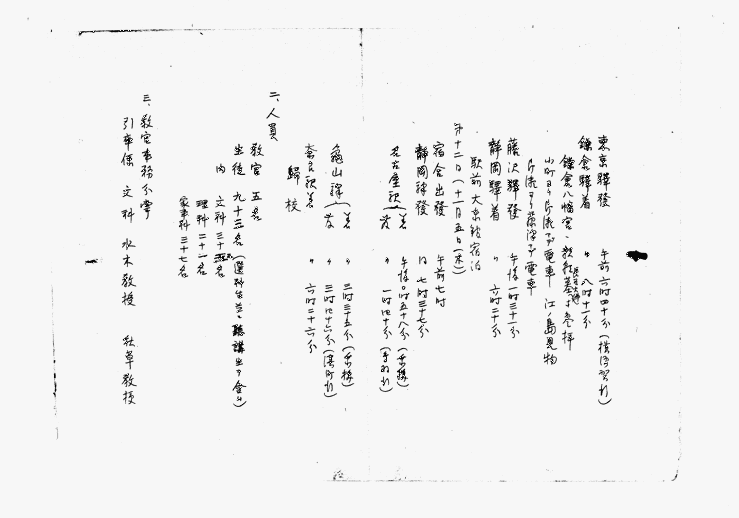 東京驛發　午前六時四十分（横須賀行）
鎌倉驛着　〃　八時十一分
鎌倉八幡宮、頼朝墓ニ参拝
長谷大佛
山ノ町ヨリ片瀬マデ電車　江ノ島見物
片瀬ヨリ藤沢マデ電車
藤沢驛發　午後一時三十一分
静岡驛着　〃　六時二十分
駅前大東館宿泊
第十二日（十一月五日（木）
宿舎出發　午前七時
静岡驛發　同　七時三十七分
名古屋駅（着　午後〇時五十八分（乗換）
（發　〃　一時四十分（湊町行）
亀山驛（着　〃　三時三十五分（乗換）
（發　〃　三時四十六分（湊町行）
奈良駅着　〃　六時二十六分
歸校
二、人員
教官　五名
生徒　九十三名（選科生並ニ聽講生ヲ含ム）
内　文科三十五名
理科二十一名
家事科三十七名
三、教官事務分掌
引率係　文科　水木教授　秋草教授